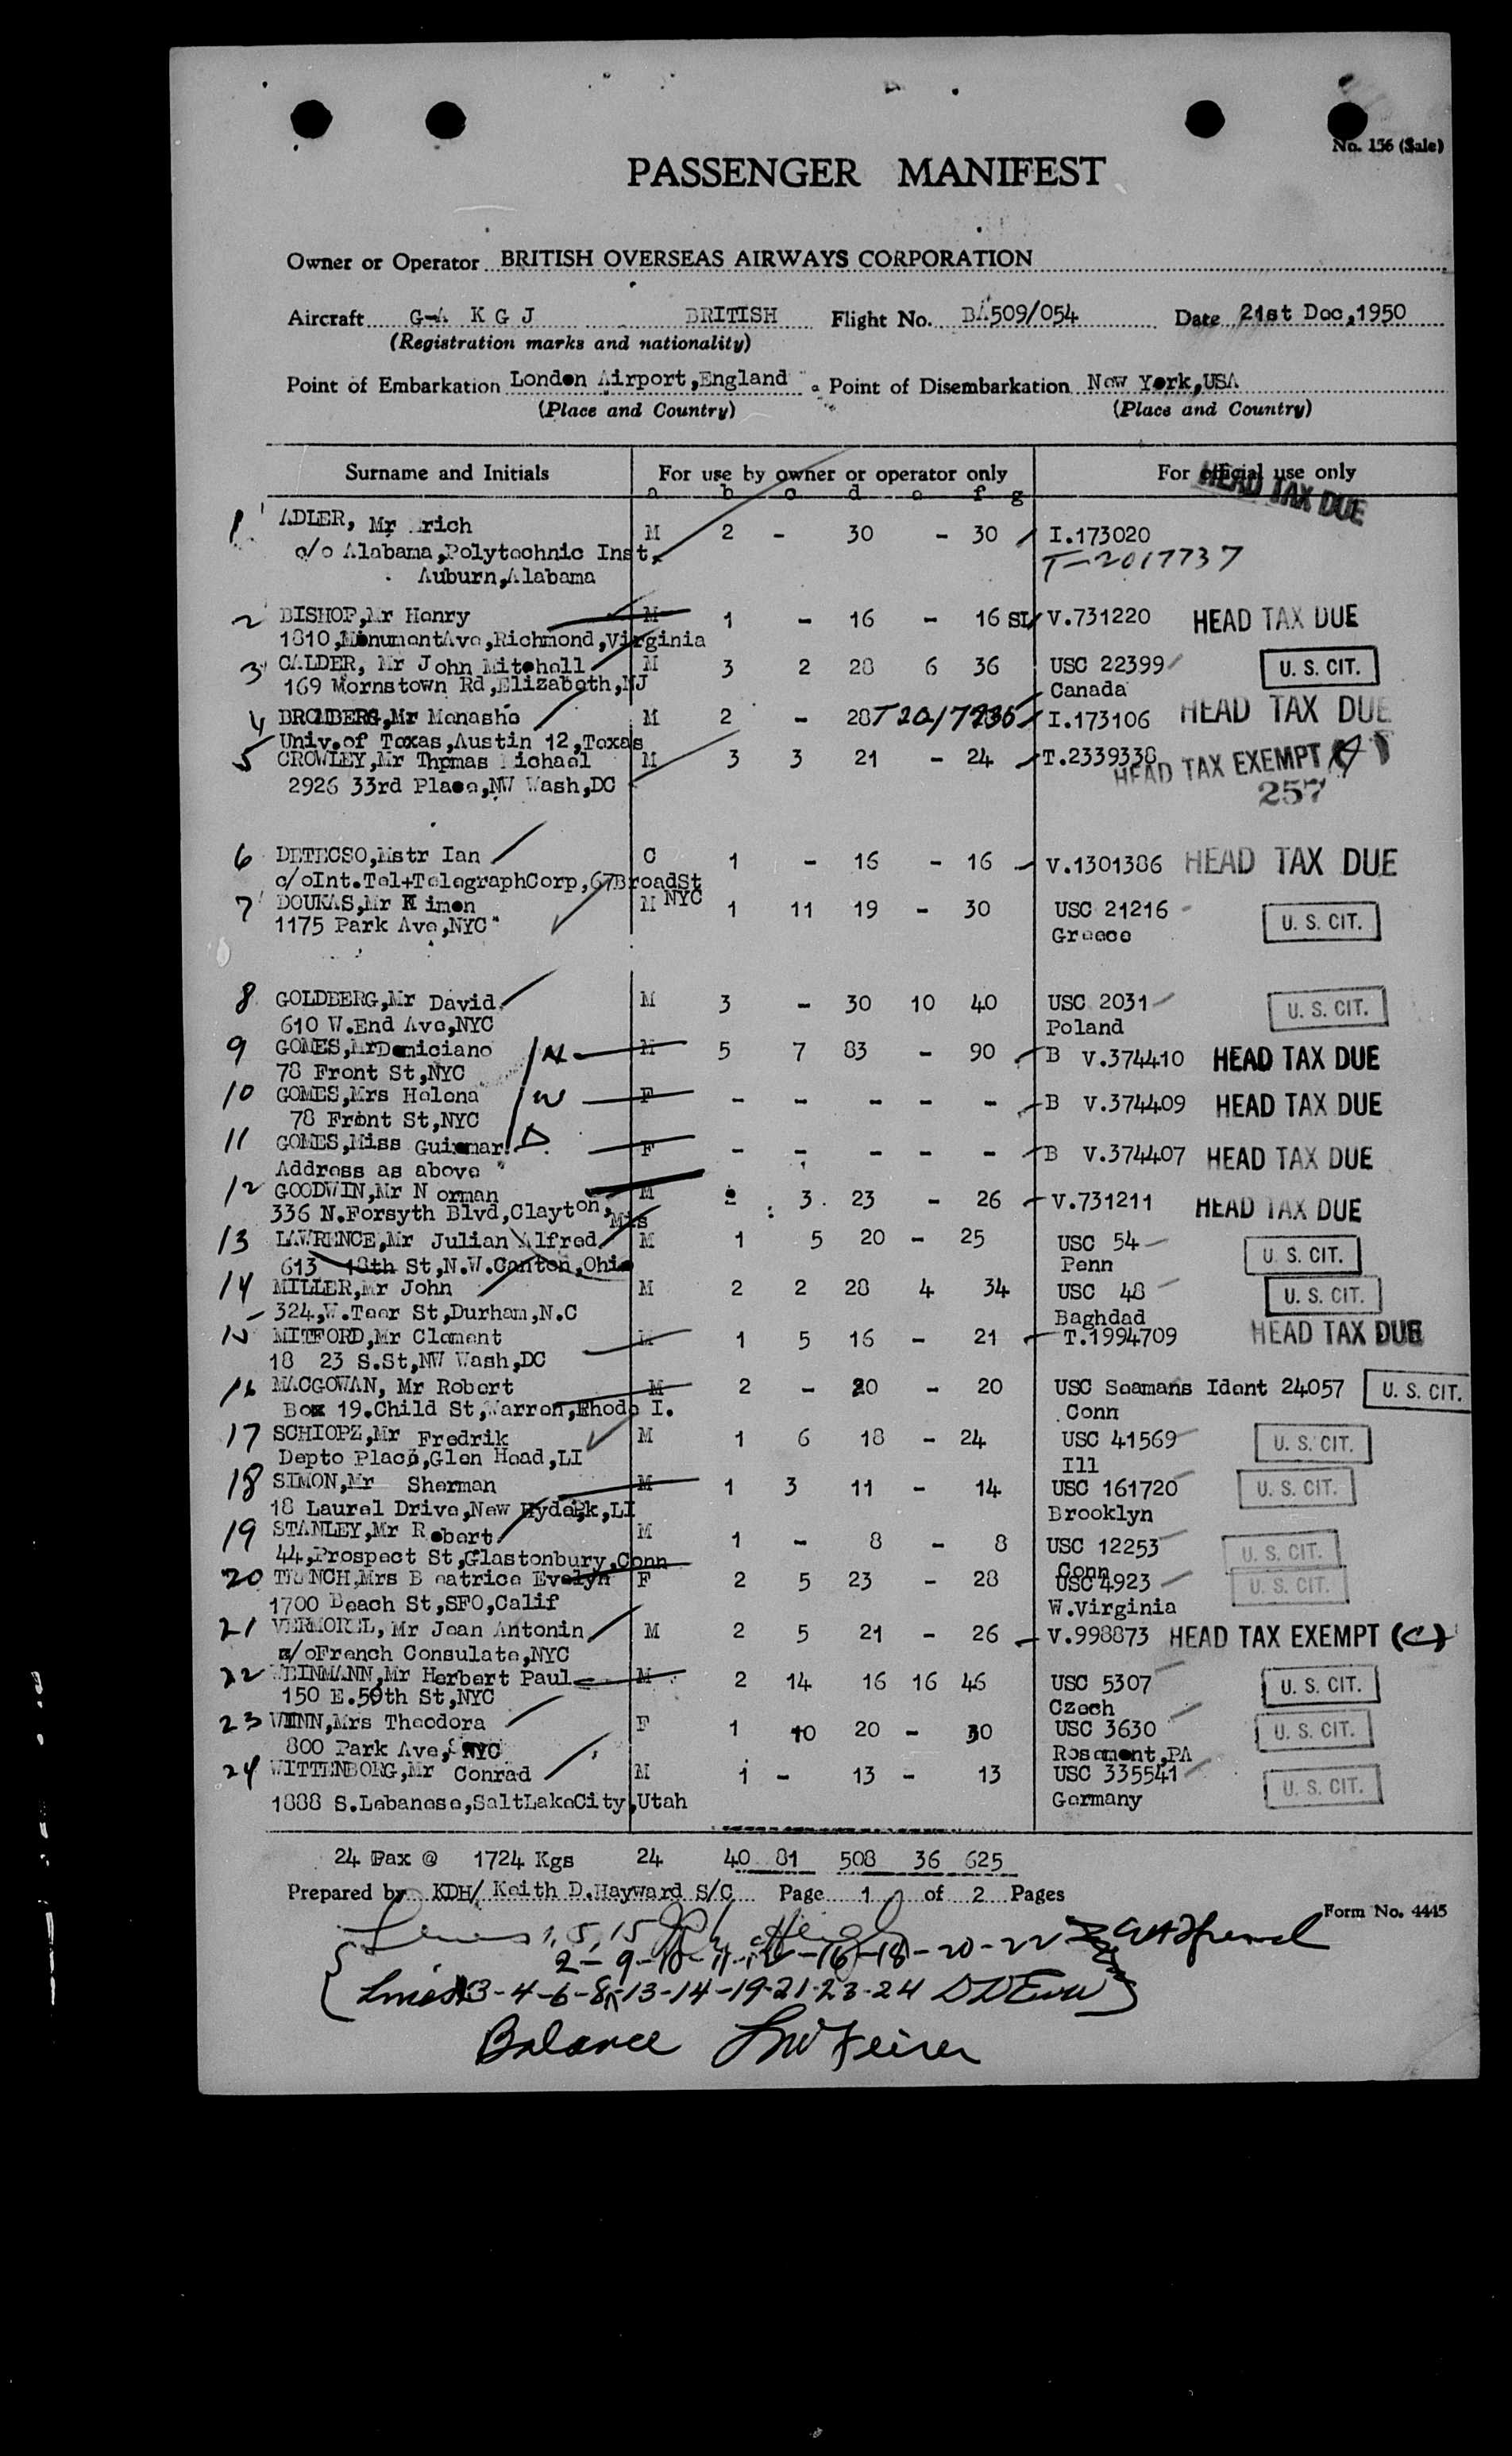 No. 156 (Sale)
PASSENGER MANIFEST
Owner or Operator BRITISH OVERSEAS AIRWAYS CORPORATION
Aircraft G-A K G J BRITISH Flight No. BA509/054 Date 21st Dec,1950
(Registration marks and nationality)
Point of Embarkation London Airport,England Point of Disembarkation New York,USA
(Place and Country) (Place and Country)
Surname and Initials For use by owner or operator only For official use only
a b c d e f g HEAD TAX DUE
1 ADLER, Mr rich M 2 - 30 - 30 I.173020
c/o Alabama,Polytechnic Inst, T-2017737
Auburn,Alabama
2 BISHOP,Mr Henry M 1 - 16 - 16 SL V.731220 HEAD TAX DUE
1810,MonumentAve,Richmond,Virginia
3 CALDER, Mr John Mitchell M 3 2 28 6 36 USC 22399 U. S. CIT.
169 Mornstown Rd,Elizabeth,NJ Canada
4 BROMBERG,Mr Menashe M 2 - 28 I.173106 HEAD TAX DUE
Univ.of Texas,Austin 12,Texas
5 CROWLEY,Mr Thomas Michael M 3 3 21 - 24 T.2339338 HEAD TAX EXEMPT
2926 33rd Place,NW Wash,DC 257
6 DETECSO,Mstr Ian C 1 - 16 - 16 V.1301386 HEAD TAX DUE
c/oInt.Tel+TelegraphCorp,67BroadSt
7 DOUKAS,Mr Kimon M NYC 1 11 19 - 30 USC 21216 U. S. CIT.
1175 Park Ave,NYC Greece
8 GOLDBERG,Mr David M 3 - 30 10 40 USC 2031 U. S. CIT.
610 W.End Ave,NYC Poland
9 GOMES,MrDomiciano M 5 7 83 - 90 B V.374410 HEAD TAX DUE
78 Front St,NYC
10 GOMES,Mrs Helena F - - - - - B V.374409 HEAD TAX DUE
78 Front St,NYC
11 GOMES,Miss Guiomar F - - - - - B V.374407 HEAD TAX DUE
Address as above
12 GOODWIN,Mr N orman M 3 23 - 26 V.731211 HEAD TAX DUE
336 N.Forsyth Blvd,Clayton, Mis
13 LAWRENCE,Mr Julian Alfred M 1 5 20 - 25 USC 54 U. S. CIT.
613 18th St,N.W.Canton,Ohio Penn
14 MILLER,Mr John M 2 2 28 4 34 USC 48 U. S. CIT.
324,W.Teer St,Durham,N.C Baghdad
15 MITFORD,Mr Clement M 1 5 16 - 21 T.1994709 HEAD TAX DUE
18 23 S.St,NW Wash,DC
16 MACGOWAN, Mr Robert M 2 - 20 - 20 USC Seamans Ident 24057 U. S. CIT.
Box 19.Child St,Warren,Rhode I. Conn
17 SCHIOPZ,Mr Fredrik M 1 6 18 - 24 USC 41569 U. S. CIT.
Depto Place,Glen Head,LI Ill
18 SIMON,Mr Sherman M 1 3 11 - 14 USC 161720 U. S. CIT.
18 Laurel Drive,New HydePk,LI Brooklyn
19 STANLEY,Mr R obert M 1 - 8 - 8 USC 12253 U. S. CIT.
44,Prospect St,Glastonbury,Conn Conn
20 TRENCH,Mrs B eatrice Evelyn F 2 5 23 - 28 USC 4923 U. S. CIT.
1700 Beach St,SFO,Calif W.Virginia
21 VERMOREL,Mr Jean Antonin M 2 5 21 - 26 V.998873 HEAD TAX EXEMPT (C)
c/oFrench Consulate,NYC
22 WEINMANN,Mr Herbert Paul M 2 14 16 16 46 USC 5307 U. S. CIT.
150 E.50th St,NYC Czech
23 WINN,Mrs Theodora F 1 10 20 - 30 USC 3630 U. S. CIT.
800 Park Ave, NYC Rosemont,PA
24 WITTENBORG,Mr Conrad M 1 - 13 - 13 USC 335541 U. S. CIT.
1888 S.Lebanese,SaltLakeCity,Utah Germany
24 Pax @ 1724 Kgs 24 40 81 508 36 625
Prepared by KDH/ Keith D.Hayward S/C Page 1 of 2 Pages
Form No. 4445
Lines 1, 5, 15
2-9-10-11-12-16-18-20-22
Lines 3-4-6-8-13-14-19-21-23-24
Balance